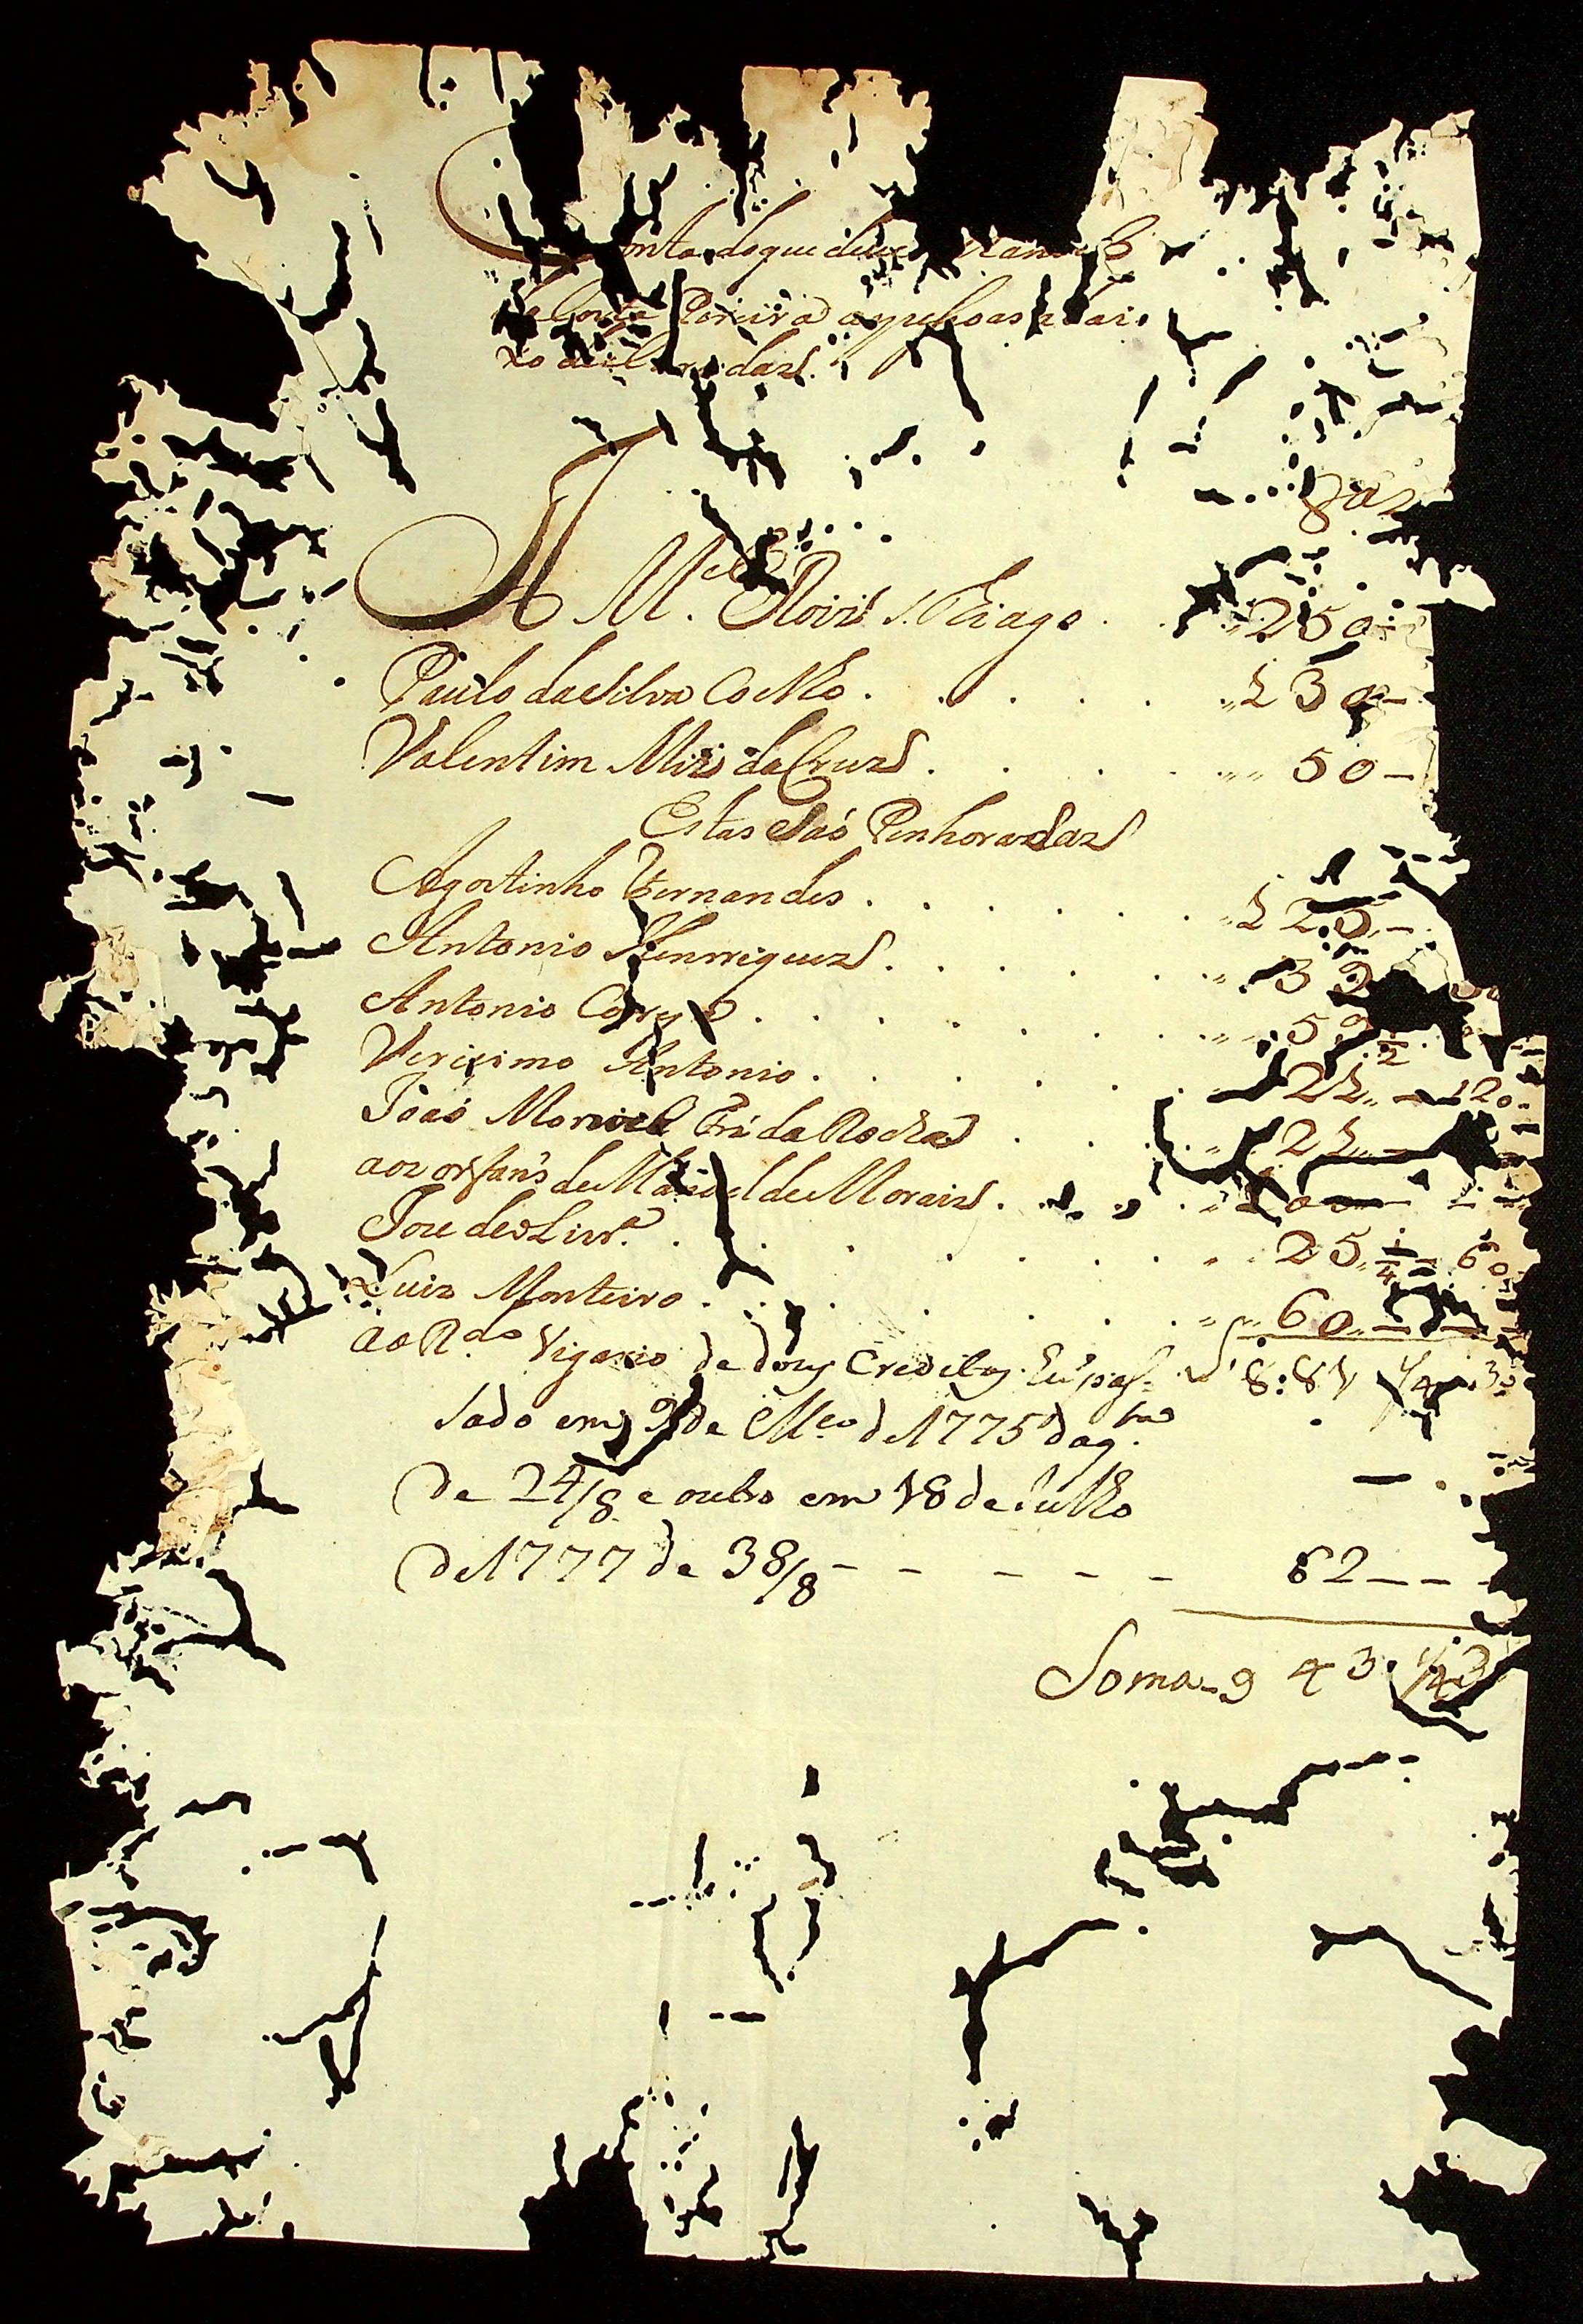 Conta do que deve Manoel
da Costa Pereira a pesoas abai-
xo declaradas.
8as
A M.el Roiz S. Tiago . . 250
Paulo da Silva Coelho . . . . . 130-
Valentim Miz da Cruz . . . . 50-
Estas são Penhoradas
Agostinho Fernandes . . . . . . 125-
Antonio Henrriques . . . . . 32
Antonio Corr.a . . . . . . . 59 1/2
Verisimo Antonio . . . . . . 21 - 120
João Manoel da Rocha . . . 21
aos orfans de Manoel de Morais . . . .
Joze de Olivr.a . . . . . . . 25 1/4 - 60
Luiz Monteiro . . . . . . 60 - -
ao R.do Vigario de dous Creditos hũ pas- 881 1/4
sado em 9 de M.ço d 1775 da q.tia
de 24/8 e outro em 18 de Julho
de 1777 de 38/8 - - - - - 62 - - -
Soma - 943 1/4